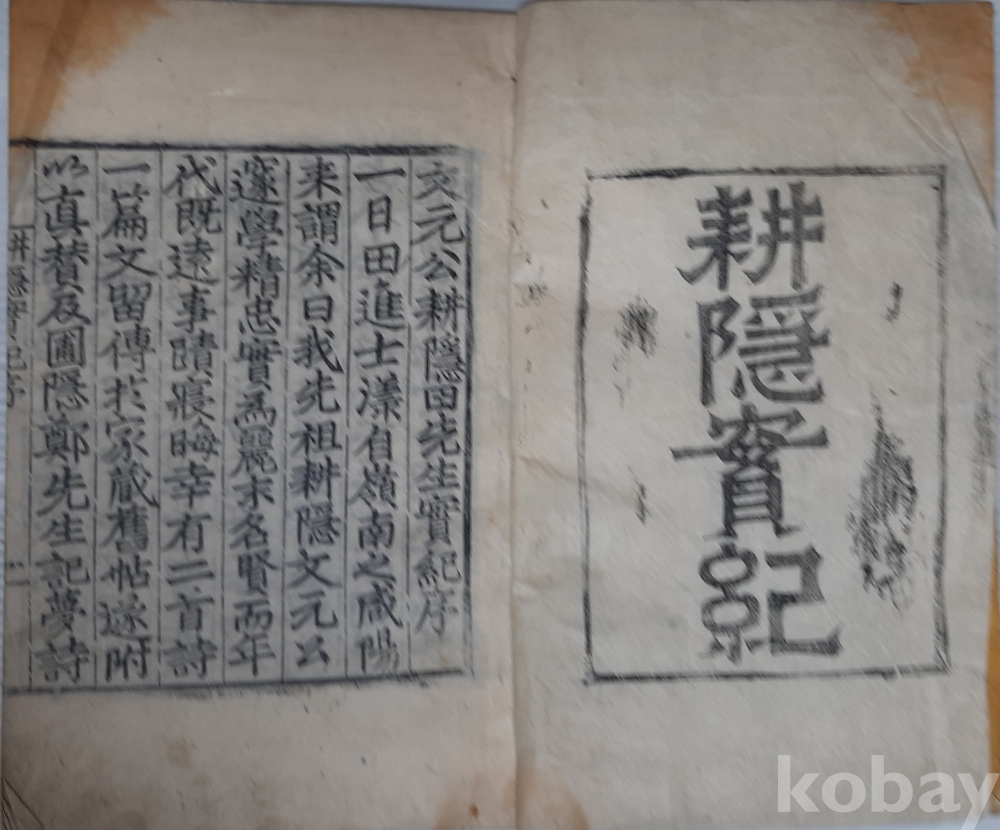 耕隠實紀
文元公耕隱田先生實紀序
一日田進士漾自嶺南之咸陽
来謂余曰我先祖耕隱文元公
邃學精忠實爲麗末名賢而年
代既遠事蹟寢晦幸有二首詩
一篇文留傳於家藏舊帖遂附
以真賛及圃隱鄭先生記夢詩
耕隱實紀序
一
kobay